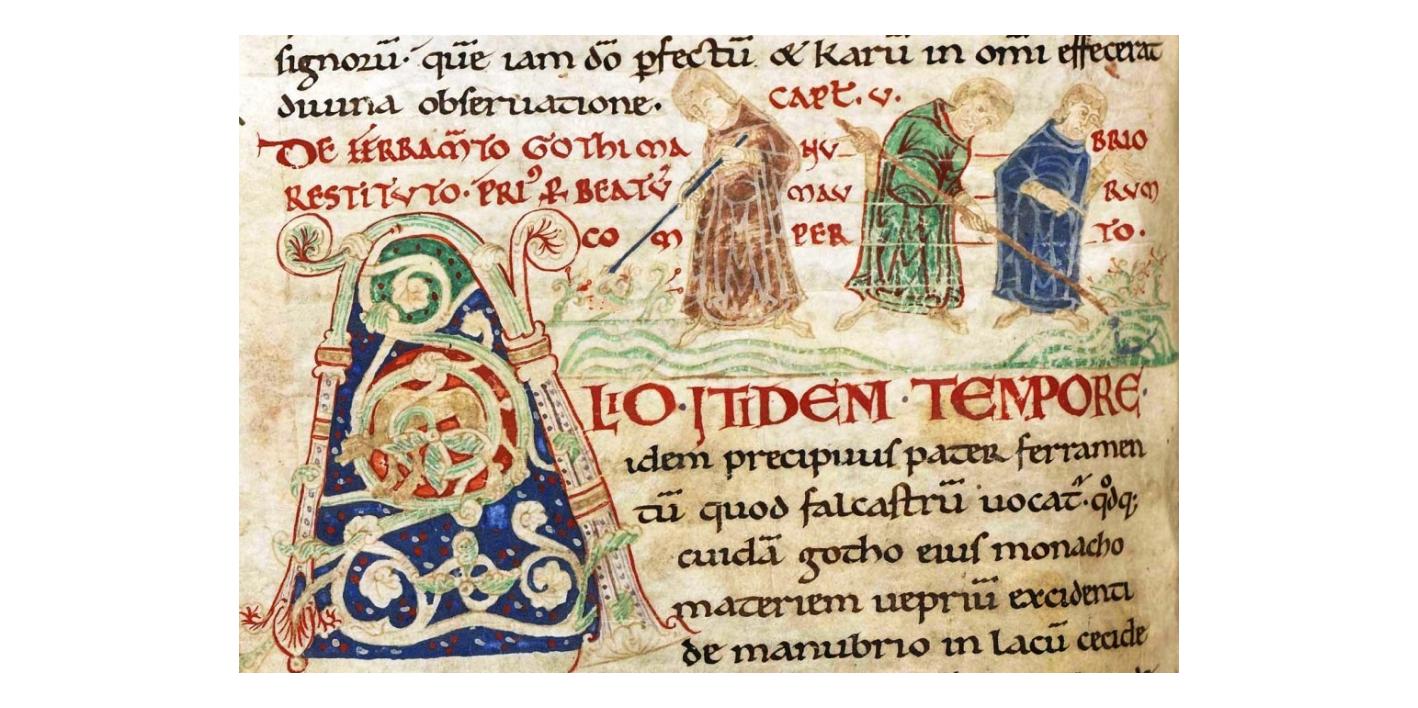 signorū· quē iam dō pfectū & karū in om̄i effecerat
diuina obseruatione·
CAPT̄. V.
DE FERRAM̄TO GOTHI MA NV BRIO
RESTITVTO· PRI⁹ BEATŪ MAV RVM
CO M PER TO·
ALIO·ITIDEM·TEMPORE·
idem precipuus pater ferramen
tū quod falcastrū uocat̄· qdq;
cuidā gotho eius monacho
materiem uepriū excidenti
de manubrio in lacū cecide